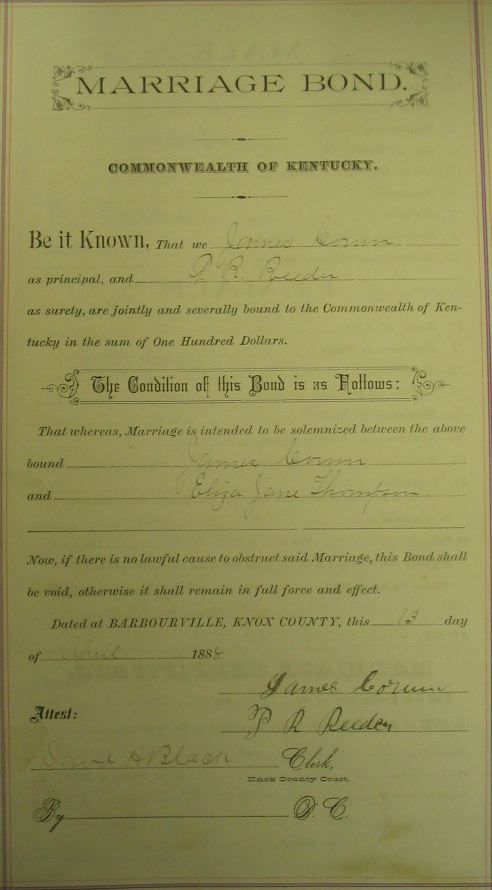 MARRIAGE BOND.
COMMONWEALTH OF KENTUCKY.
Be it Known, That we James Corum
as principal, and P. R. Reeder
as surety, are jointly and severally bound to the Commonwealth of Ken-
tucky in the sum of One Hundred Dollars.
The Condition of this Bond is as Follows:
That whereas, Marriage is intended to be solemnized between the above
bound James Corum
and Eliza Jane Thompson
Now, if there is no lawful cause to obstruct said Marriage, this Bond shall
be void, otherwise it shall remain in full force and effect.
Dated at BARBOURVILLE, KNOX COUNTY, this 13 day
of April 1888.
James Corum
Attest: P R Reeder
Black Clerk,
Knox County Court.
By D. C.